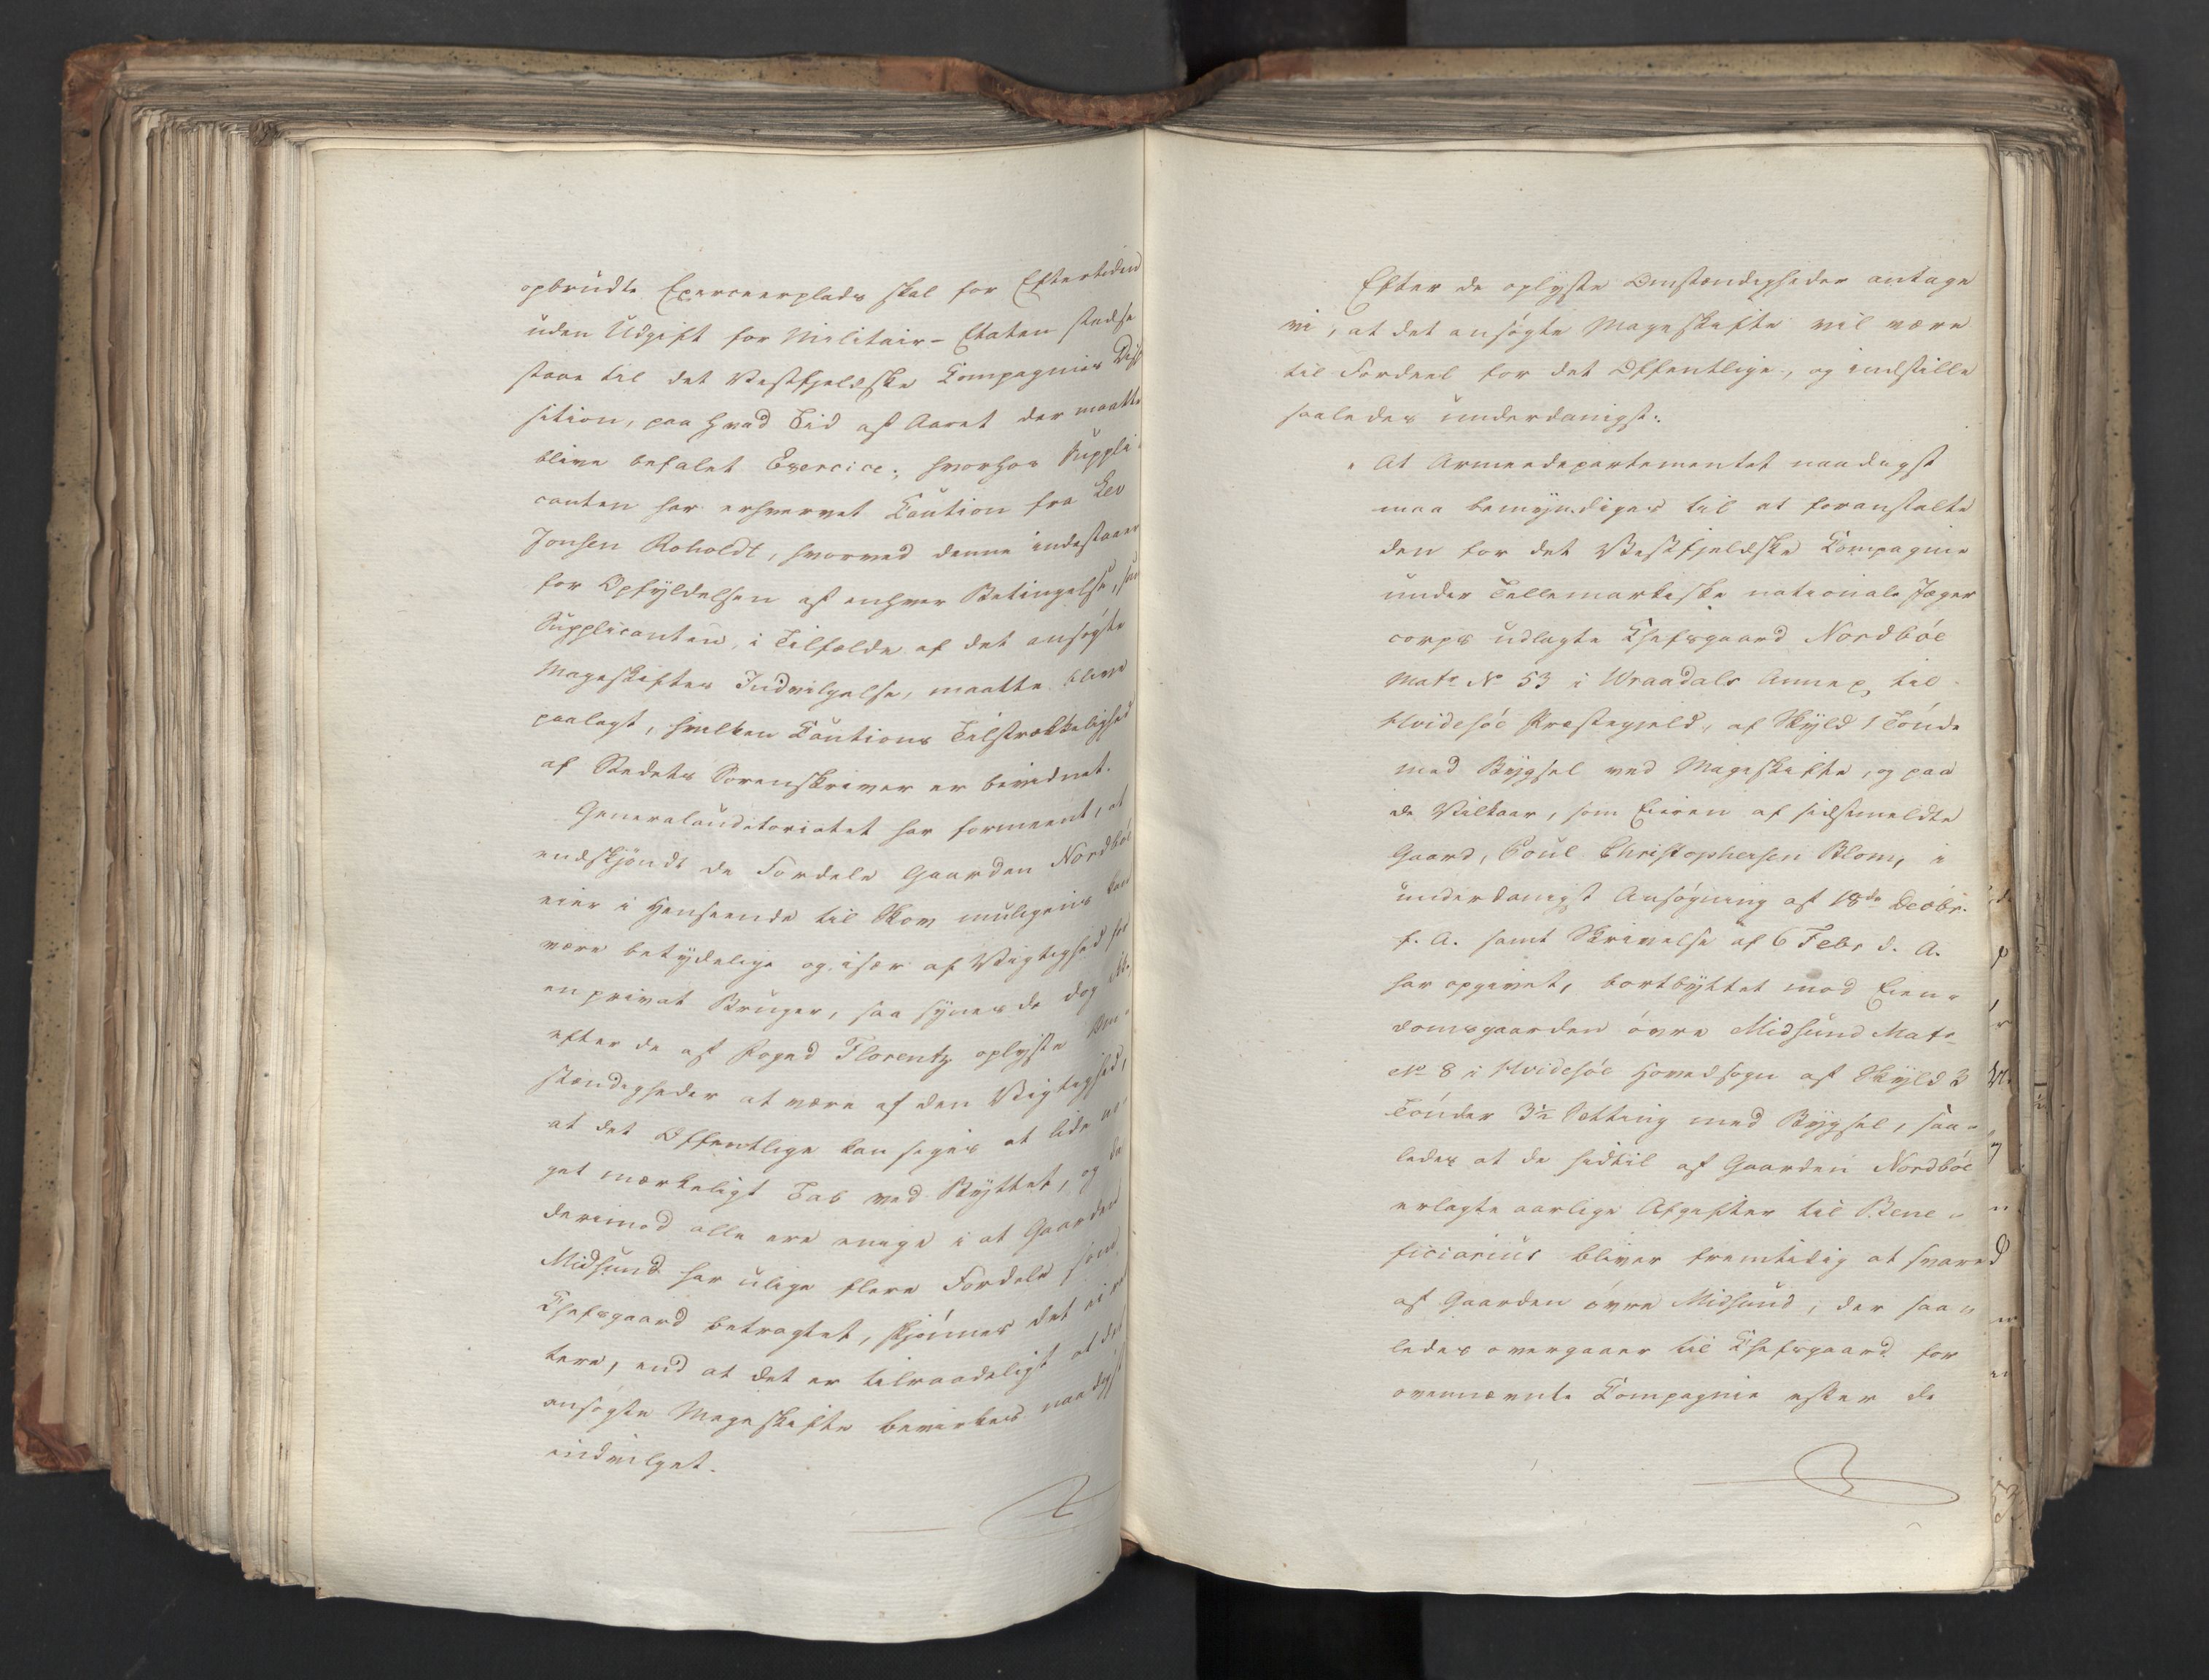 opbrudte Exerceerplads skal for Eftertiden
uden Udgift for Militair-Etaten stedse
staae til det Vestfjeldske Compagnies Dis
sition, paa hvad Tid af Aaret der maatte
blive befalet Exercice; hvorhos Suppli-
canten har erhvervet Caution fra Lev
Jonsen Roholdt, hvorved denne indestaaer
for Opfyldelsen af enhver Betingelse, som
Supplicanten, i Tilfælde af det ansøgte
Mageskiftes Indvilgelse, maatte blive
paalagt, hvilken Cautions Tilstrækkelighed
af Stedets Sorenskriver er bevidnet.
Generalauditoriatet har formeent, at
endskjøndt de Fordele Gaarden Nordbøe
eier i Henseende til Skov muligens kan
være betydelige og især af Vigtighed for
en privat Bruger, saa synes de dog ikke
efter de af Foged Florentz oplyste Om-
stændigheder at være af den Vigtighed,
at det Offentlige kan siges at lide no-
get mærkeligt Tab ved Byttet, og da
derimod alle ere enige i at Gaarden
Midsund har ulige flere Fordele som
Chefsgaard betragtet, skjønnes det ei re
tere, end at det er tilraadeligt at det
ansøgte Mageskifte bevirkes naadigst
indvilget.
Efter de oplyste Omstændigheder antage
vi, at det ansøgte Mageskifte vil være
til Fordeel for det Offentlige, og indstille
saaledes underdanigst:
" At Armeedepartementet naadigst
maa bemyndiges til at foranstalte
den for det Vestfjeldske Compagnie
under Tellemarkeske nationale Jæger
corps udlagte Chefsgaard Nordbøe
Matr No 53 i Wraadals Annex til
Hvidesøe Præstegjeld, af Skyld 1 Tønde
med Bygsel ved Mageskifte, og paa
de Vilkaar, som Eieren af sidstmeldte
Gaard, Poul Christophersen Blom, i
underdanigst Ansøgning af 18de Decbr.
f. A. samt Skrivelse af 6 Febr d. A.
har opgivet, bortbyttet mod Eien-
domsgaarden øvre Midsund Matr
No 8 i Hvidesøe Hovedsogn af Skyld 3
Tønder 3½ Setting med Bygsel, saa-
ledes at de hidtil af Gaarden Nordbøe
erlagte aarlige Afgifter til Bene-
ficiarius bliver fremtidig at svare
af Gaarden øvre Midsund, der saa-
ledes overgaaer til Chefsgaard for
ovennævnte Compagnie efter de